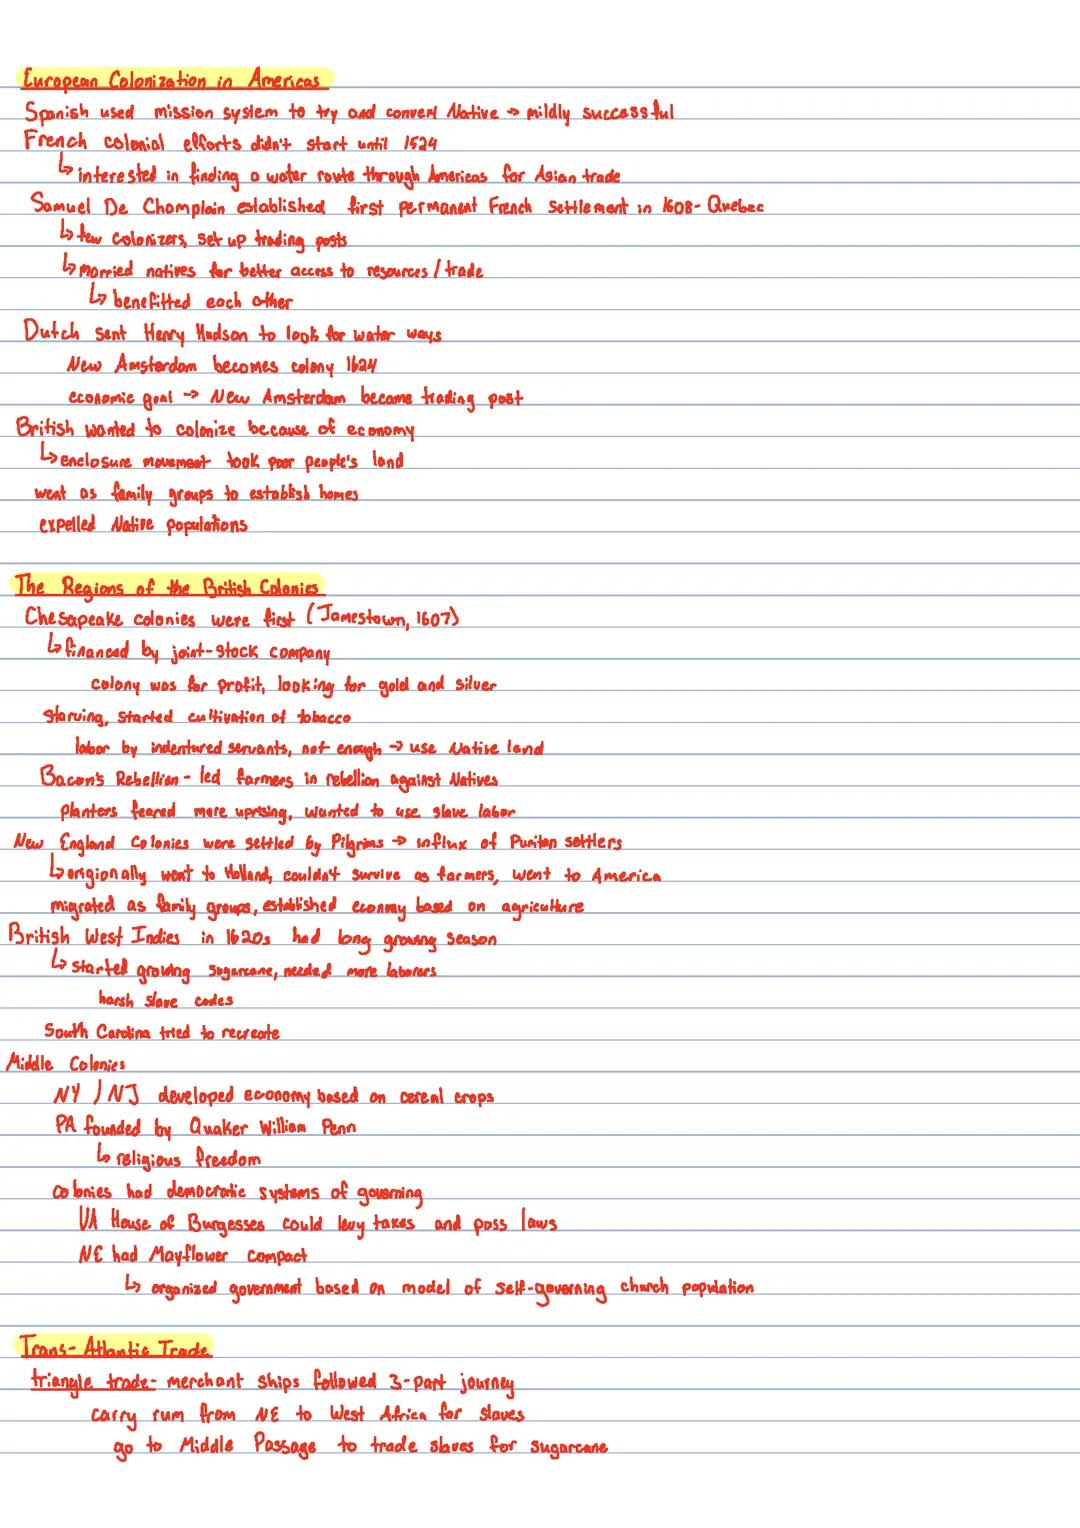 European Colonization in Americas
Spanish used mission system to try and convert Native → mildly successful
French colonial efforts didn't start until 1524
↳ interested in finding a water route through Americas for Asian trade
Samuel De Champlain established first permanent French Settlement in 1608 - Quebec
↳ few colonizers, set up trading posts
↳ married natives for better access to resources / trade
↳ benefitted each other
Dutch sent Henry Hudson to look for water ways
New Amsterdam becomes colony 1624
economic goal → New Amsterdam became trading post
British wanted to colonize because of economy
↳ enclosure movement took poor people's land
went as family groups to establish homes
expelled Native populations
The Regions of the British Colonies
Chesapeake colonies were first (Jamestown, 1607)
↳ financed by joint-stock company
colony was for profit, looking for gold and silver
starving, started cultivation of tobacco
labor by indentured servants, not enough → use Native land
Bacon's Rebellion - led farmers in rebellion against Natives
planters feared more uprising, wanted to use slave labor
New England Colonies were settled by Pilgrims → influx of Puritan settlers
↳ origionally went to Holland, couldn't survive as farmers, went to America
migrated as family groups, established economy based on agriculture
British West Indies in 1620s had long growing season
↳ started growing sugarcane, needed more laborers
harsh slave codes
South Carolina tried to recreate
Middle Colonies
NY / NJ developed economy based on cereal crops
PA founded by Quaker William Penn
↳ religious freedom
colonies had democratic systems of governing
VA House of Burgesses could levy taxes and pass laws
NE had Mayflower compact
↳ organized government based on model of self-governing church population
Trans-Atlantic Trade
triangle trade - merchant ships followed 3-part journey
carry rum from NE to West Africa for slaves
go to Middle Passage to trade slaves for sugarcane